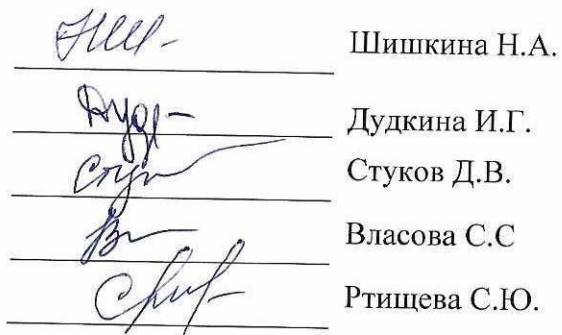 Шишкина Н.А.
Дудкина И.Г.
Стуков Д.В.
Власова С.С
Ртищева С.Ю.